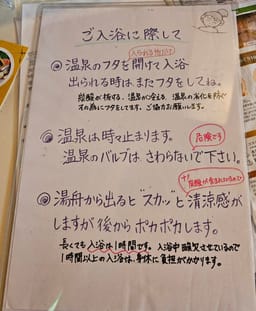 ご入浴に際して
入られる方だけ
◎温泉のフタを開けて入浴
出られる時はまたフタをしてね。
炭酸が抜ける、温泉が冷える、温泉の劣化を防ぐ
その為にフタをしてます。ご協力お願いします。
危険です
◎温泉は時々止まります。
温泉のバルブは、さわらないで下さい。
炭酸が含まれているので
◎湯舟から出ると"スカッ"と清涼感が
しますが後からポカポカします。
長くても入浴は1時間です。入浴中 曝気させているので
1時間以上の入浴は身体に負担がかかります。